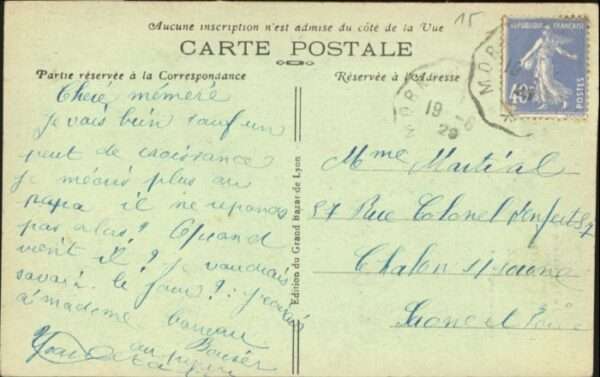 Aucune inscription n'est admise du côté de la Vue
CARTE POSTALE
Partie réservée à la Correspondance
Réservée à l'Adresse
15
RÉPUBLIQUE FRANÇAISE
40
POSTES
MORN
19 -6
29
Cheré mémeré
je vais bien sauf un
peut de croissance
je plus au
papa il ne reponds
pas a las? Quand
vient il? je vaudrais
savoir le jour?
a madame
Bauser
Edition du Grand Bazar de Lyon
Mme Martial
57 Rue Colonel Denfert 57
Chalon s/ saone
Saone et Loire